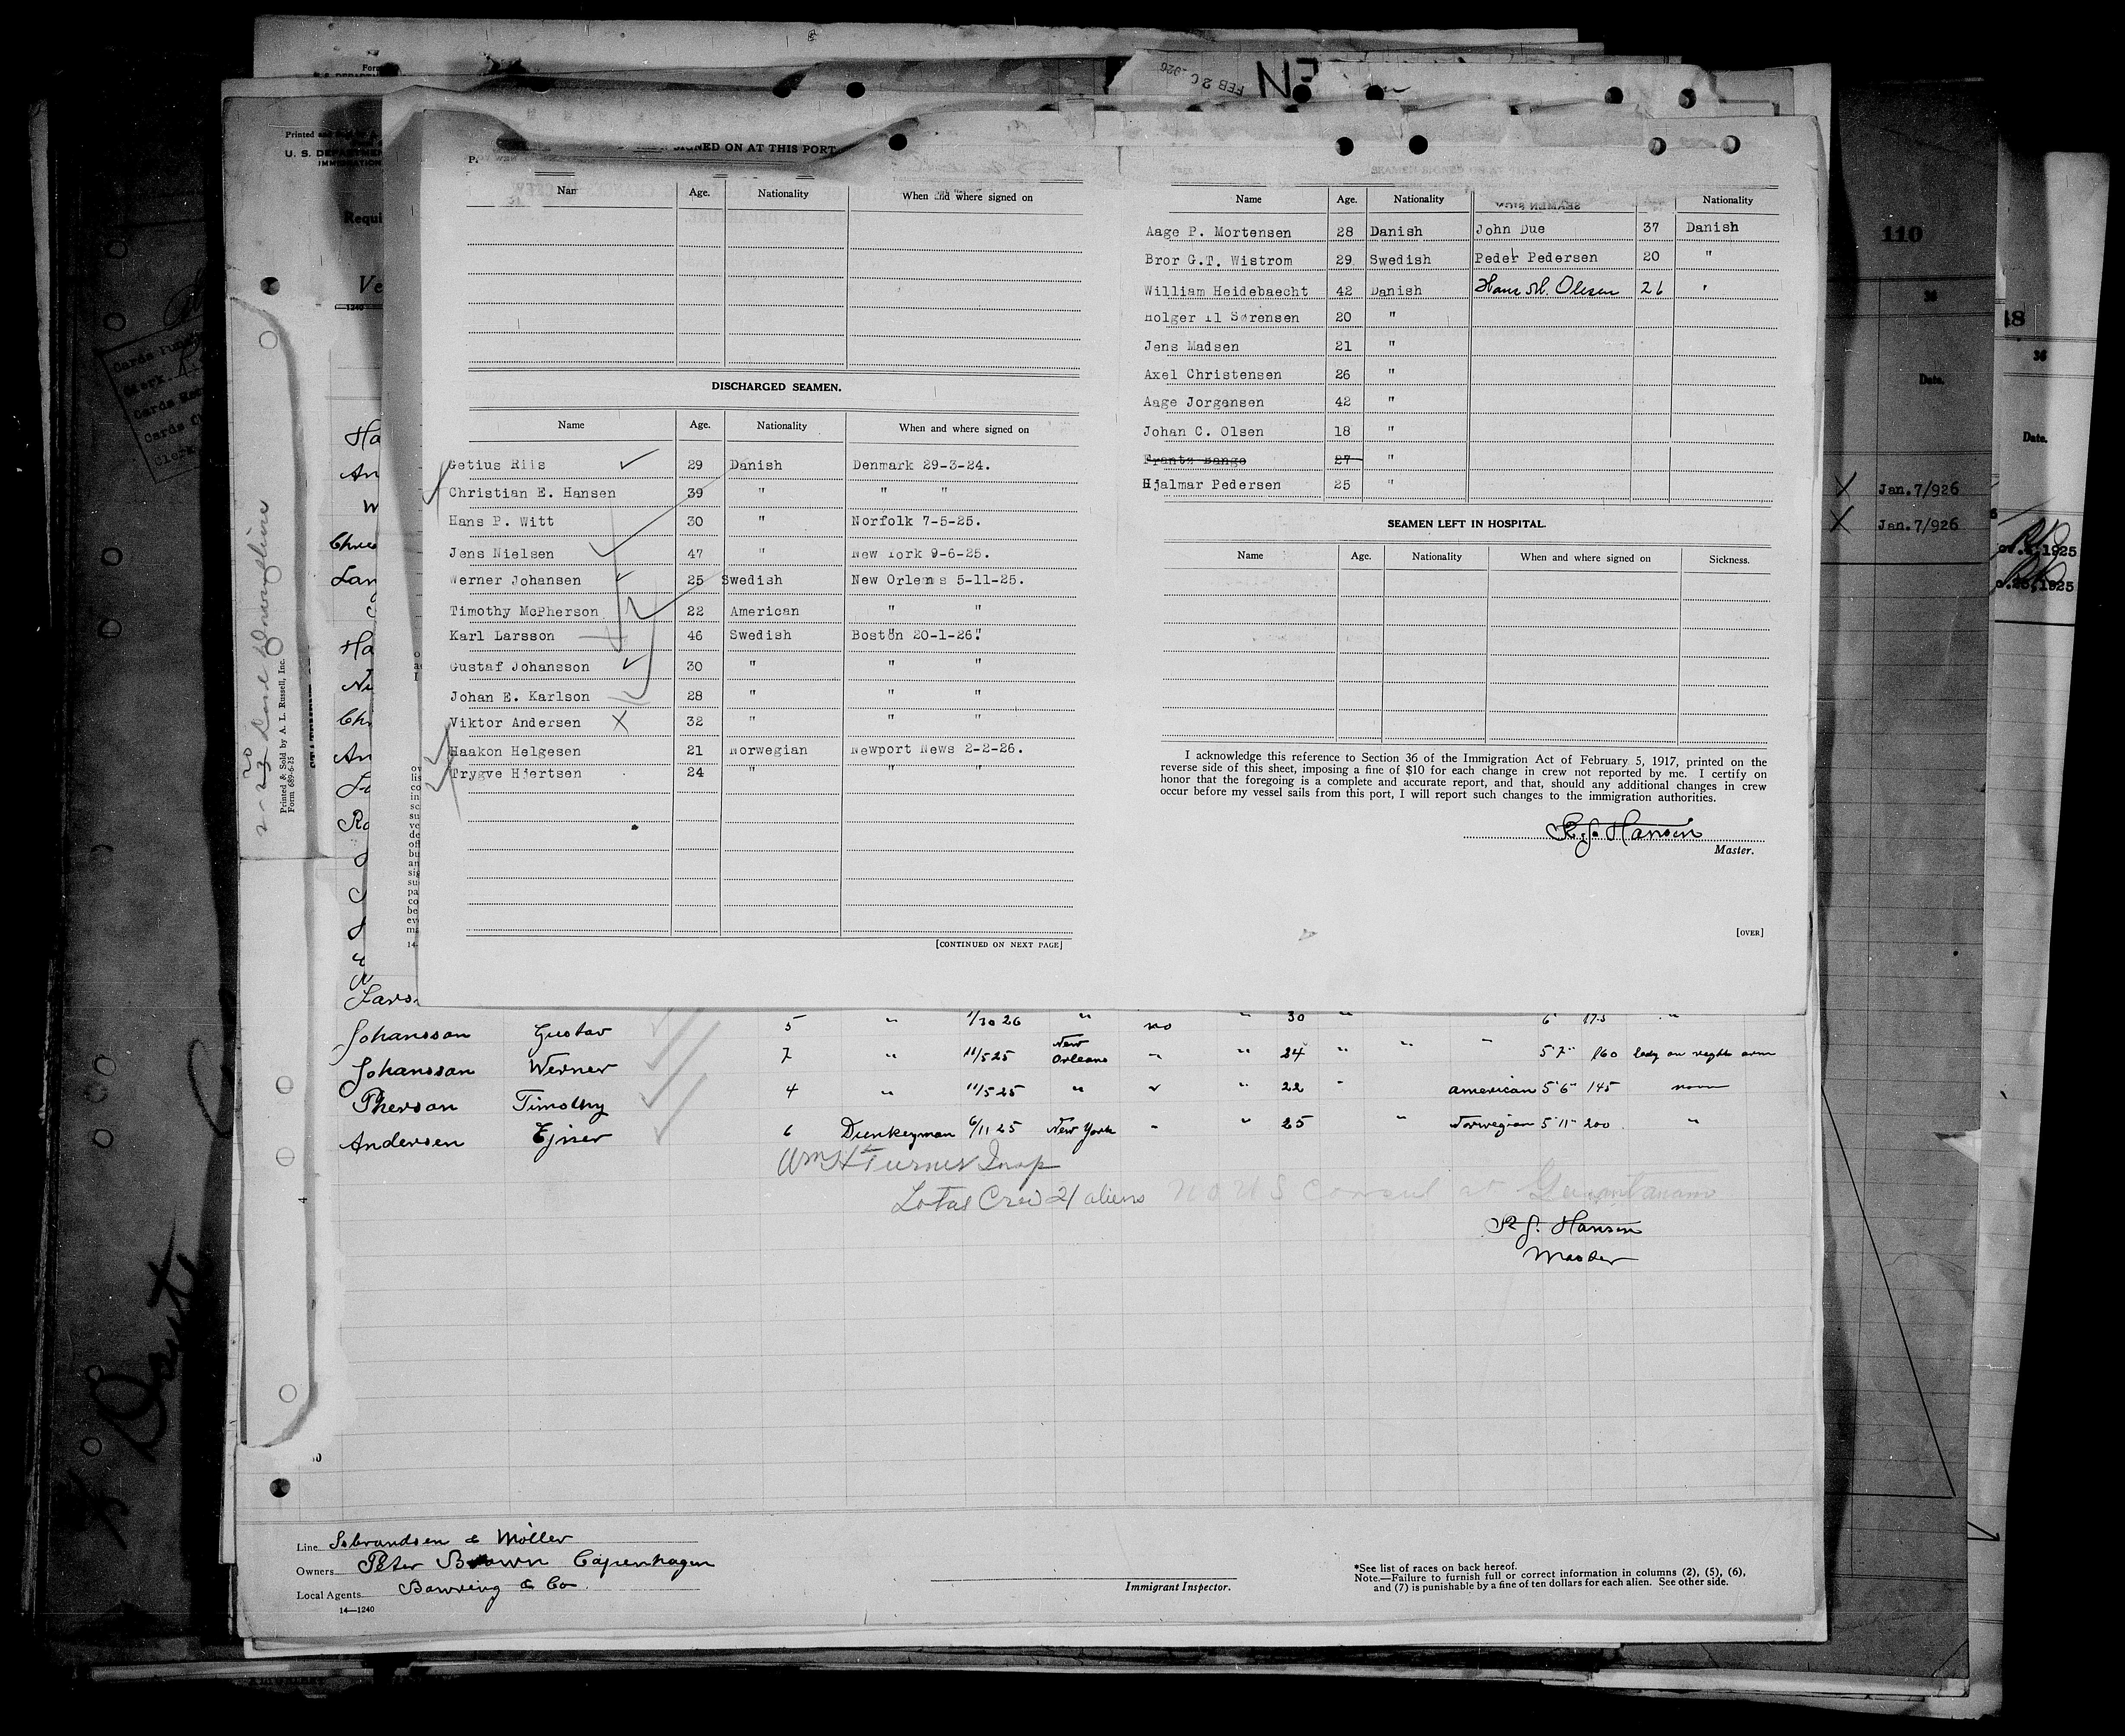 FEB 2 1926
EN
Form
Printed and
U. S. DEPARTME
IMMIGRATION
Requi
Ve
1240
SIGNED ON AT THIS PORT
Nam Age. Nationality When and where signed on
DISCHARGED SEAMEN.
Name Age. Nationality When and where signed on
Getius Riis 29 Danish Denmark 29-3-24.
Christian E. Hansen 39 " " "
Hans P. Witt 30 " Norfolk 7-5-25.
Jens Nielsen 47 " New York 9-6-25.
Werner Johansen 25 Swedish New Orleans 5-11-25.
Timothy McPherson 22 American " "
Karl Larsson 46 Swedish Boston 20-1-26.
Gustaf Johansson 30 " " "
Johan E. Karlson 28 " " "
Viktor Andersen X 32 " " "
Haakon Helgesen 21 Norwegian Newport News 2-2-26.
Trygve Hjertsen 24 " " "
[CONTINUED ON NEXT PAGE]
Name Age. Nationality SEAMEN SIGN Nationality
Aage P. Mortensen 28 Danish John Due 37 Danish
Bror G.T. Wistrom 29 Swedish Peder Pedersen 20 "
William Heidebaecht 42 Danish Hans M. Olesen 21 "
Holger Il Sørensen 20 "
Jens Madsen 21 "
Axel Christensen 26 "
Aage Jorgensen 42 "
Johan C. Olsen 18 "
Frants Bange 27 "
Hjalmar Pedersen 25 "
SEAMEN LEFT IN HOSPITAL.
Name Age. Nationality When and where signed on Sickness.
I acknowledge this reference to Section 36 of the Immigration Act of February 5, 1917, printed on the
reverse side of this sheet, imposing a fine of $10 for each change in crew not reported by me. I certify on
honor that the foregoing is a complete and accurate report, and that, should any additional changes in crew
occur before my vessel sails from this port, I will report such changes to the immigration authorities.
Hansen
Master.
[OVER]
110
36
Date.
X Jan.7/926
X Jan.7/926
18
36
Date.
1925
1925
Printed & Sold by A. L. Russell, Inc.
Form 689-6-25
Ha
An
W
Chri
Lan
Ha
Ni
Chr
An
Ro
Lars
Johansson Gustav 5 " 1/30 26 " no " 30 " 6 175 "
Johansson Werner 7 " 11/5 25 New Orleans " " 24 " " " 5'7" 160 lady on right arm
Pherson Timothy 4 " 11/5 25 " " " 22 " american 5'6" 145 none
Andersen Ejner 6 Dunkeyman 6/11 25 New York " " 25 " Norwegian 5'11" 200 "
Wm H Turner Insp
Total Crew 21 aliens No U S Consul at
Hansen
Master
Line Isbrandsen & Möller
Owners Peter Brown Copenhagen
Local Agents Bowring & Co.
14—1240
Immigrant Inspector.
*See list of races on back hereof.
Note.—Failure to furnish full or correct information in columns (2), (5), (6),
and (7) is punishable by a fine of ten dollars for each alien. See other side.